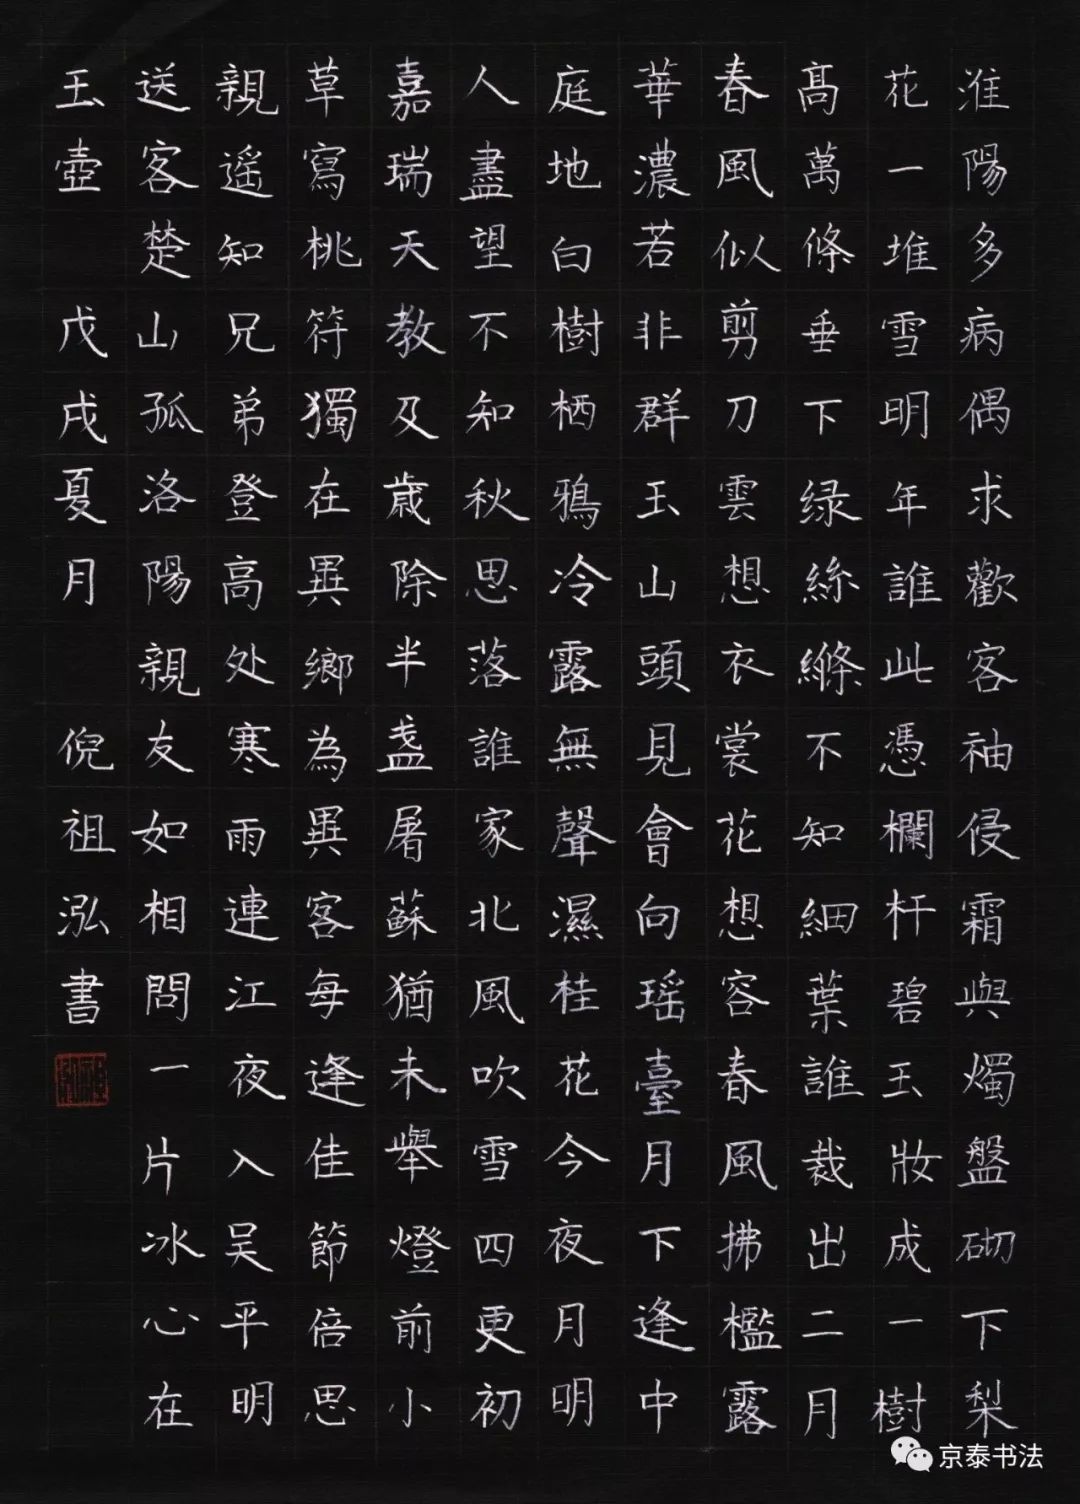 淮陽多病偶求歡客袖侵霜與燭盤砌下梨
花一堆雪明年誰此憑欄杆碧玉妝成一樹
高萬條垂下绿絲縧不知細葉誰裁出二月
春風似剪刀雲想衣裳花想容春風拂檻露
華濃若非群玉山頭見會向瑶臺月下逢中
庭地白樹栖鴉冷露無聲濕桂花今夜月明
人盡望不知秋思落誰家北風吹雪四更初
嘉瑞天教及歲除半盏屠蘇猶未舉燈前小
草寫桃符獨在異鄉為異客每逢佳節倍思
親遥知兄弟登高处寒雨連江夜入吴平明
送客楚山孤洛陽親友如相問一片冰心在
玉壺 戊戌夏月 倪祖泓書
京泰书法